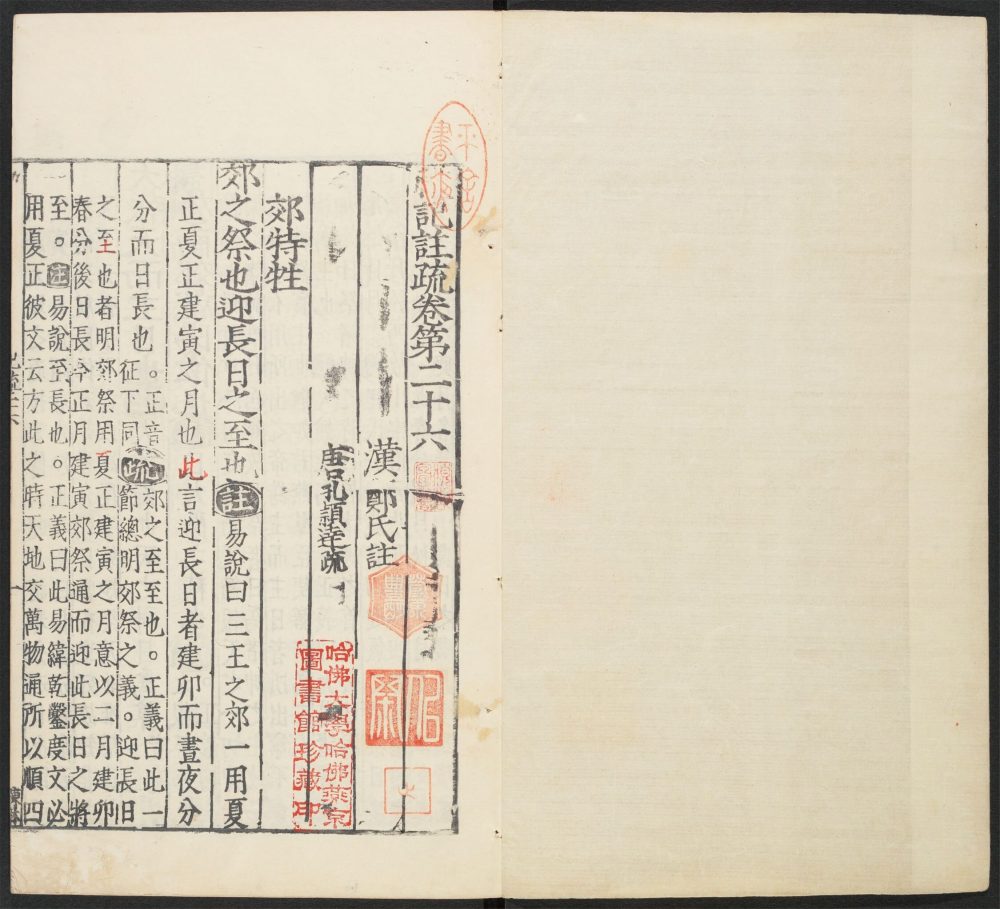 記註疏卷第二十六
漢鄭氏註
唐孔穎達疏
郊特牲
郊之祭也迎長日之至也註易說曰三王之郊一用夏
正夏正建寅之月也此言迎長日者建卯而晝夜分
分而日長也。正音
征下同
疏
郊之至至也。正義曰此一
節總明郊祭之義。迎長日
之至也者明郊祭用夏正建寅之月意以二月建卯
春分後日長今正月建寅郊祭通而迎此長日之將
至。註易說至長也。正義曰此易緯乾鑿度文必
用夏正彼文云方此之時天地交萬物通所以順四
哈佛大學哈佛燕京
圖書館珍藏印